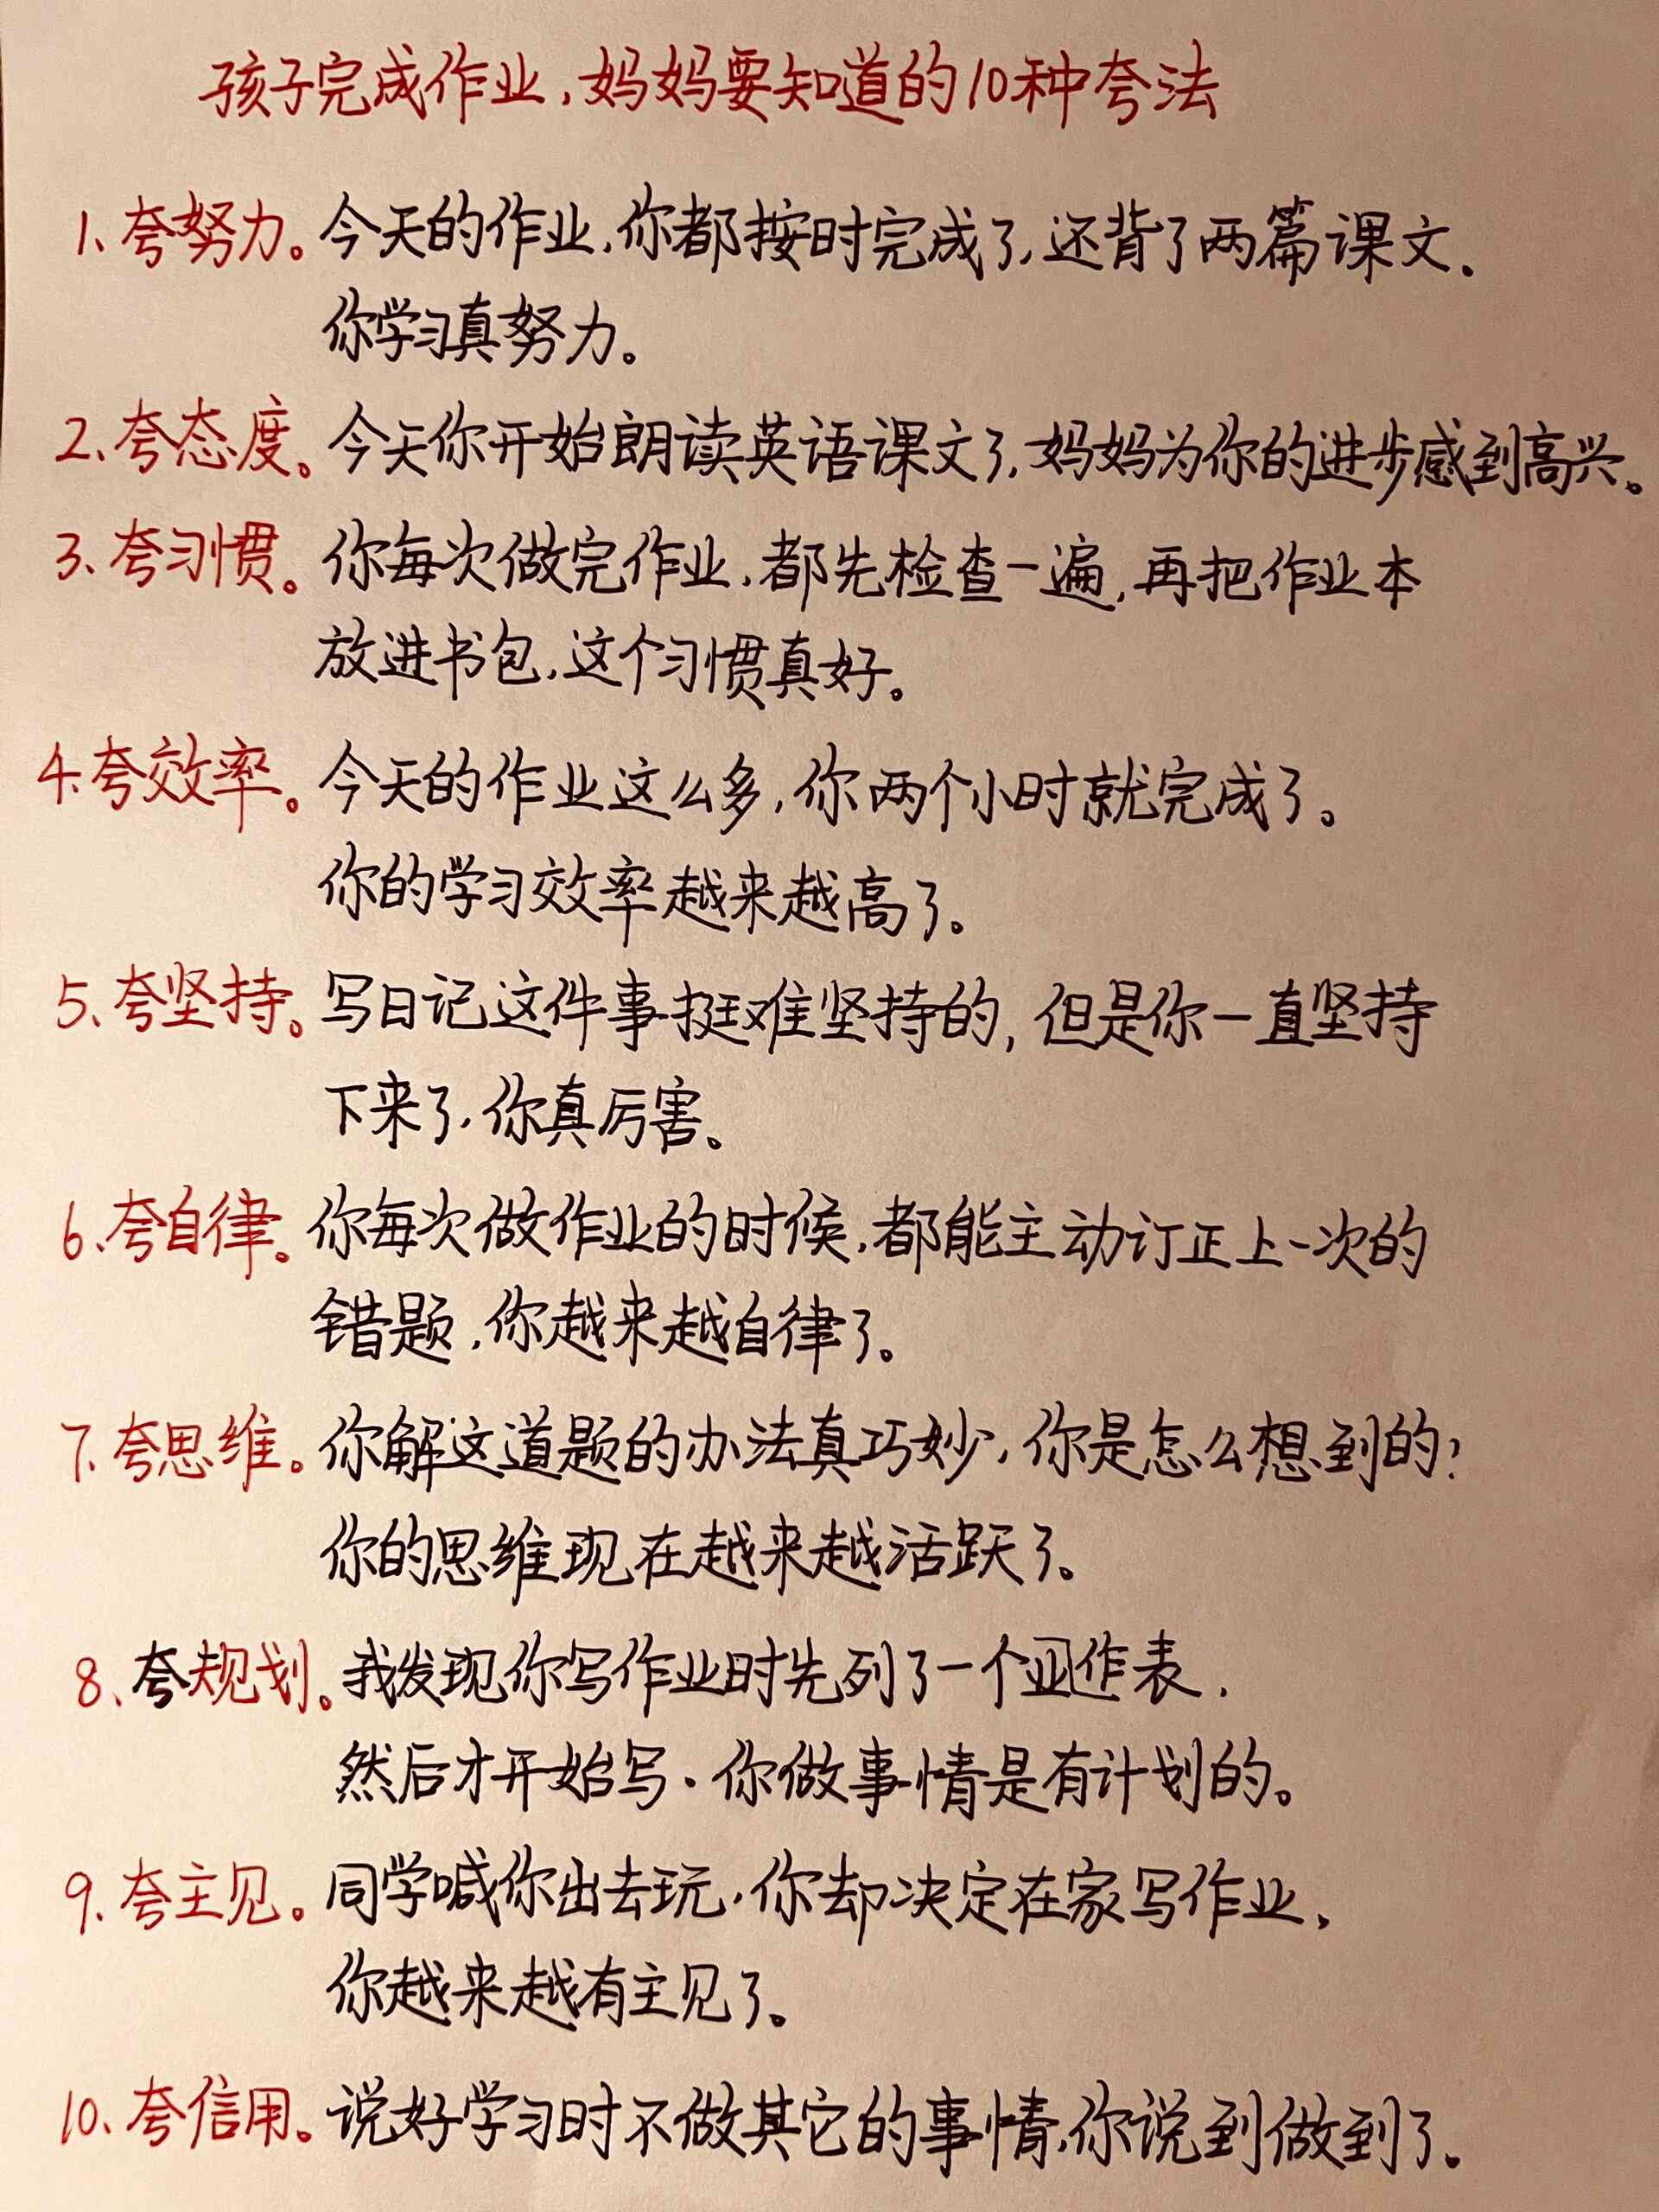 孩子完成作业，妈妈要知道的10种夸法
1、夸努力。今天的作业，你都按时完成了，还背了两篇课文．
你学习真努力。
2、夸态度。今天你开始朗读英语课文了，妈妈为你的进步感到高兴。
3、夸习惯。你每次做完作业，都先检查一遍，再把作业本
放进书包，这个习惯真好。
4、夸效率。今天的作业这么多，你两个小时就完成了。
你的学习效率越来越高了。
5、夸坚持。写日记这件事挺难坚持的，但是你一直坚持
下来了，你真厉害。
6、夸自律。你每次做作业的时候，都能主动订正上一次的
错题，你越来越自律了。
7、夸思维。你解这道题的办法真巧妙，你是怎么想到的？
你的思维现在越来越活跃了。
8、夸规划。我发现你写作业时先列了一个作表．
然后才开始写．你做事情是有计划的。
9、夸主见。同学喊你出去玩，你却决定在家写作业，
你越来越有主见了。
10、夸信用。说好学习时不做其它的事情，你说到做到了。